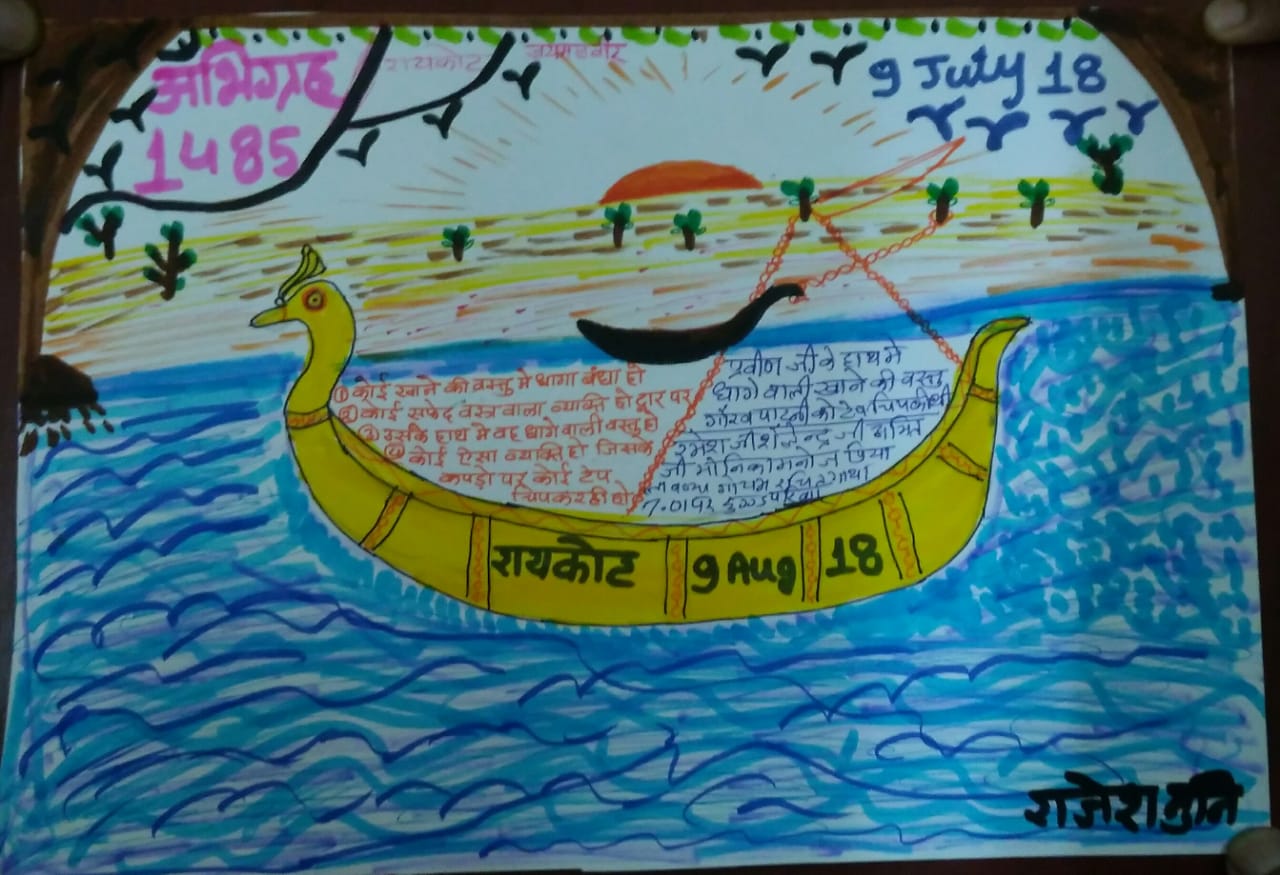 अभिग्रह
1485
रायकोट
जय महावीर
9 July 18
① कोई खाने की वस्तु मे धागा बंधा हो
② कोई सफेद वस्त्र वाला व्यक्ति हो द्वार पर
③ उसके हाथ मे वह धागे वाली वस्तु हो
④ कोई ऐसा व्यक्ति हो जिसके
कपड़ो पर कोई टेप
चिपक रही हो
प्रवीण जी के हाथ मे
धागे वाली खाने की वस्तु
गौरव पाटनी को टेप चिपकी थी
रमेश जी शैलेन्द्र जी
जी मोनिका मनोज प्रिया
रायकोट
9 Aug
18
राजेश मुनि